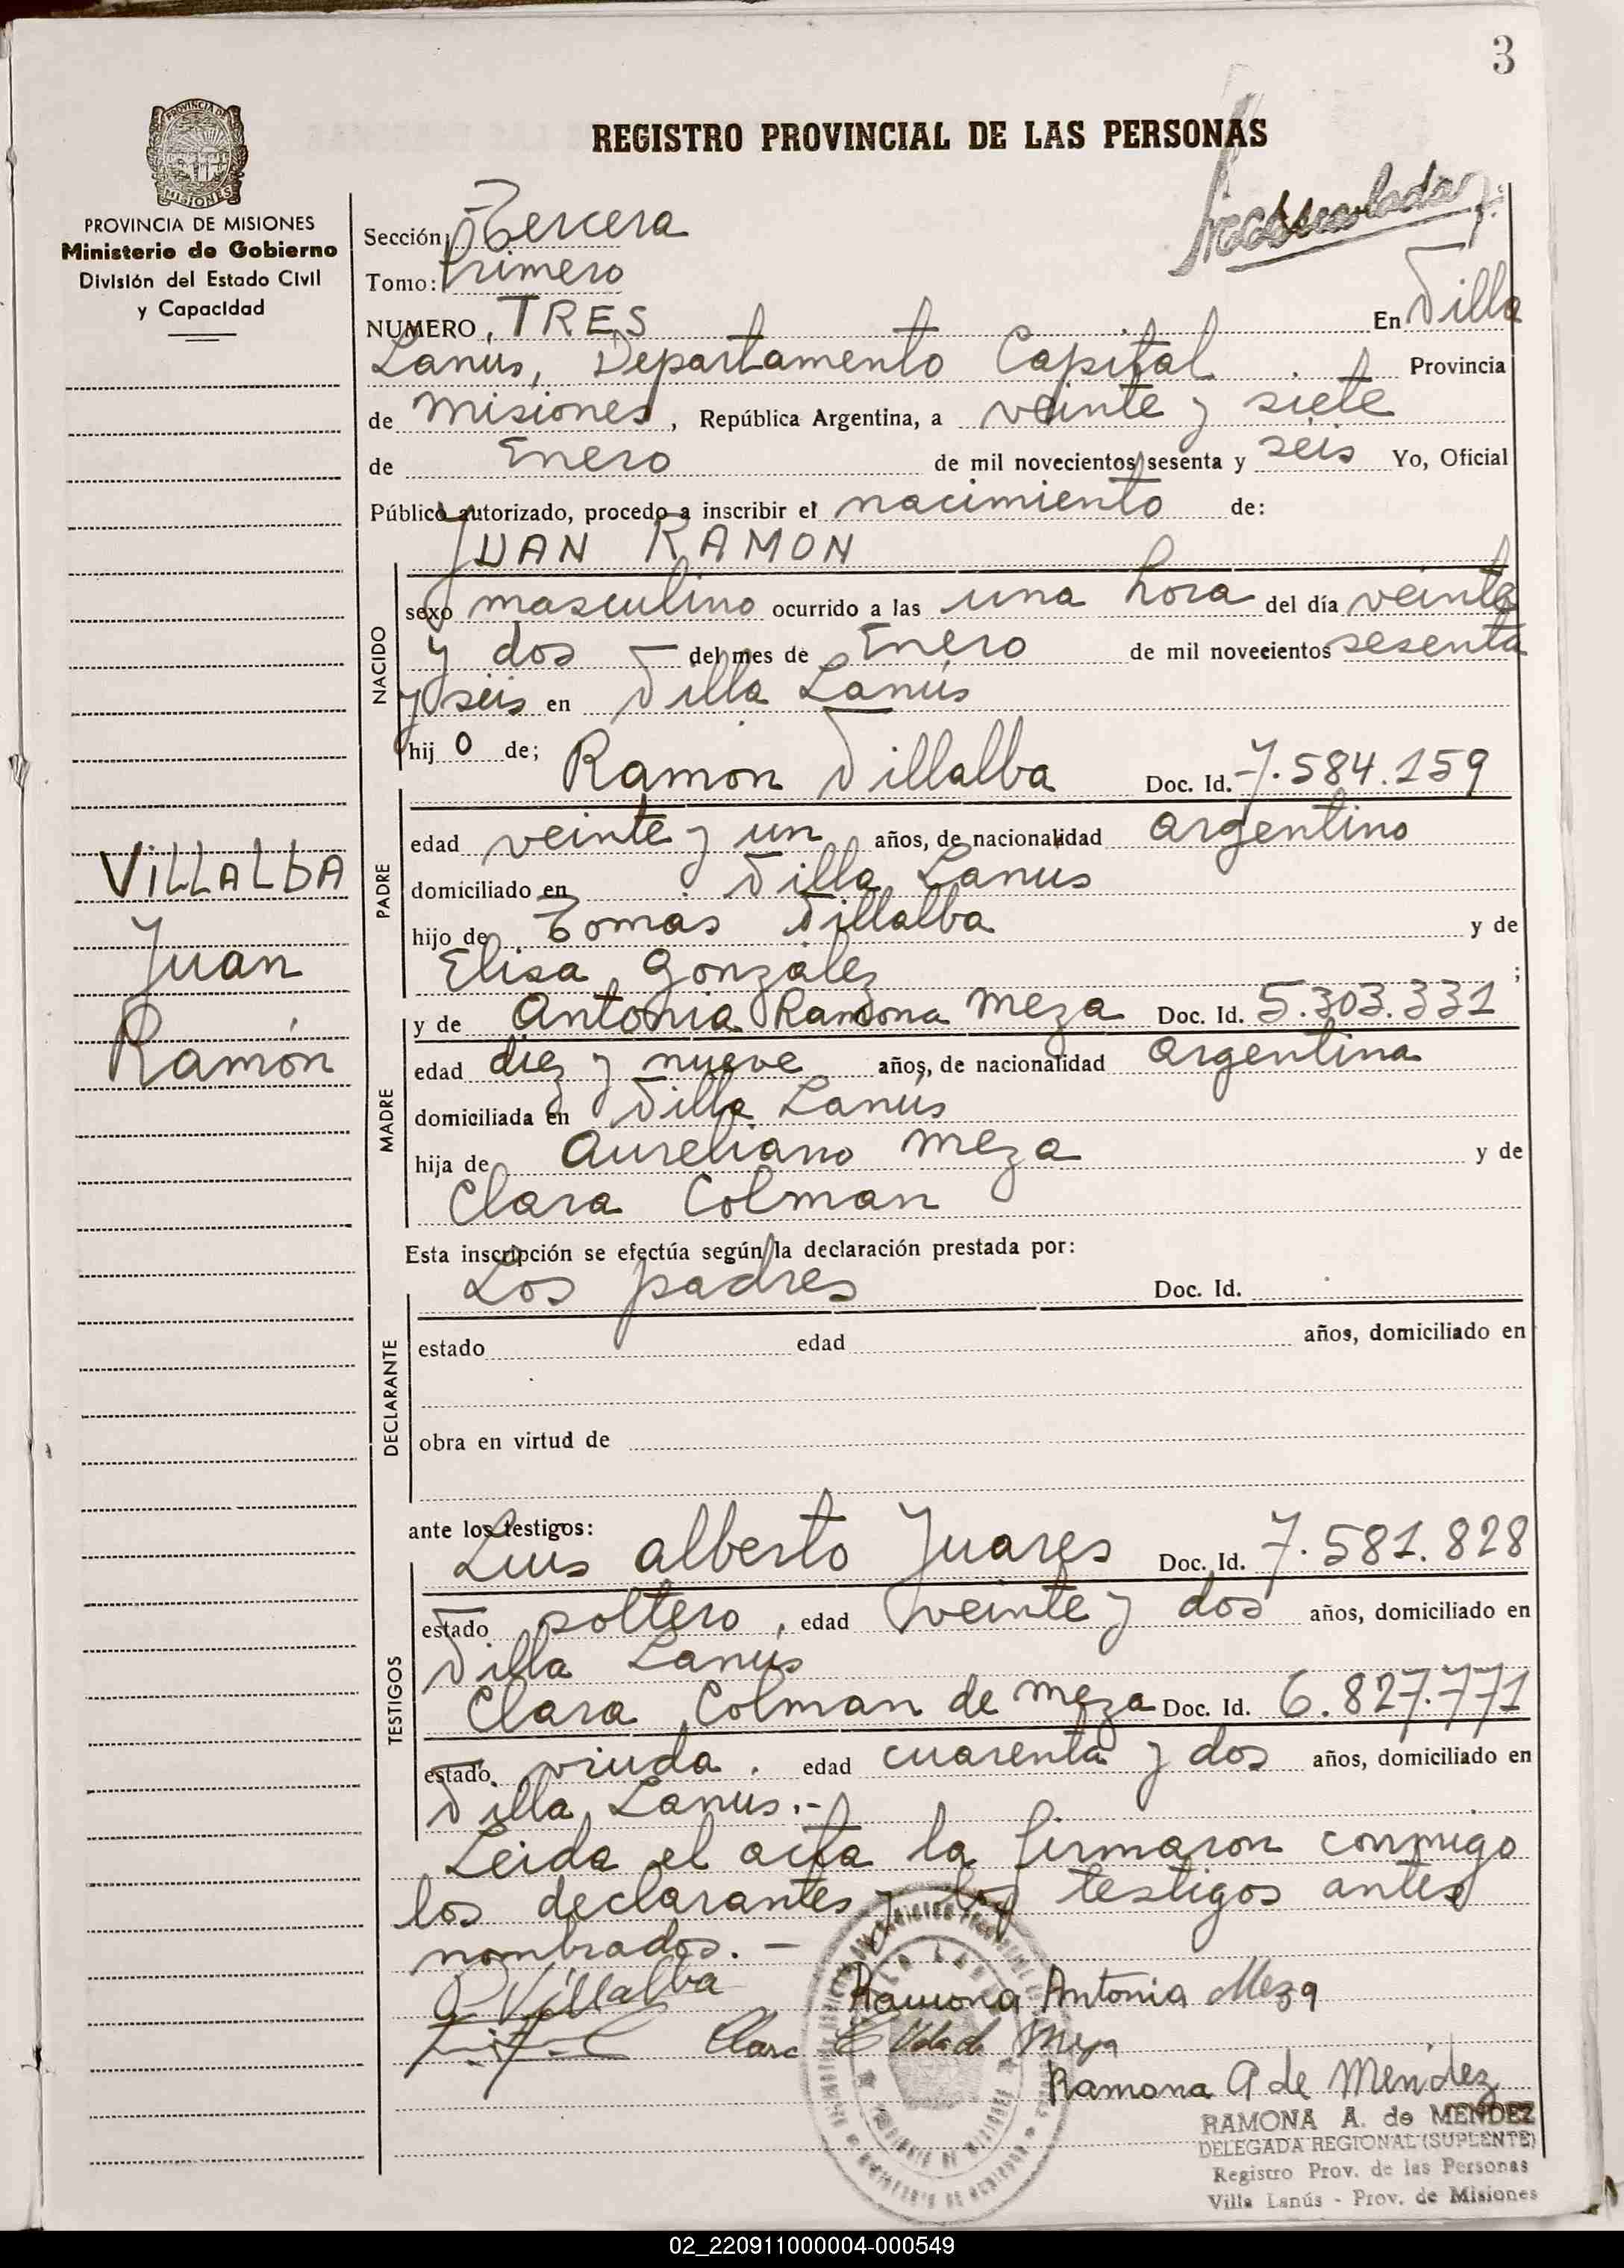 3
REGISTRO PROVINCIAL DE LAS PERSONAS
PROVINCIA DE MISIONES
MISIONES
PROVINCIA DE MISIONES
Ministerio de Gobierno
División del Estado Civil
y Capacidad
Sección: Tercera
Tomo: Primero
NUMERO, TRES En Villa
Lanus, Departamento Capital Provincia
de Misiones, República Argentina, a veinte y siete
de Enero de mil novecientos sesenta y seis Yo, Oficial
Público autorizado, procedo a inscribir el nacimiento de:
JUAN RAMON
NACIDO
sexo masculino ocurrido a las una hora del día veinte
y dos — del mes de Enero de mil novecientos sesenta
y seis en Villa Lanús
hij o de; Ramon Villalba Doc. Id. 7.584.159
PADRE
edad veinte y un años, de nacionalidad argentino
domiciliado en Villa Lanus
hijo de Tomás Villalba y de
Elisa Gonzalez ;
VILLALBA
Juan
Ramón
y de Antonia Ramona Meza Doc. Id. 5.303.331
MADRE
edad diez y nueve años, de nacionalidad argentina
domiciliada en Villa Lanús
hija de Aureliano Meza y de
Clara Colman
Esta inscripción se efectúa según la declaración prestada por:
Los padres Doc. Id.
DECLARANTE
estado edad años, domiciliado en
obra en virtud de
ante los testigos:
Luis alberto Juares Doc. Id. 7.581.828
TESTIGOS
estado soltero, edad veinte y dos años, domiciliado en
Villa Lanús
Clara Colman de Meza Doc. Id. 6.827.771
estado viuda. edad cuarenta y dos años, domiciliado en
Villa Lanus.-
Leida el acta la firmaron conmigo
los declarantes y los testigos antes
nombrados. —
Villalba
Ramona Antonia Meza
Clara
Ramona A de Mendez
RAMONA A. de MENDEZ
DELEGADA REGIONAL (SUPLENTE)
Registro Prov. de las Personas
Villa Lanús - Prov. de Misiones
02_220911000004-000549